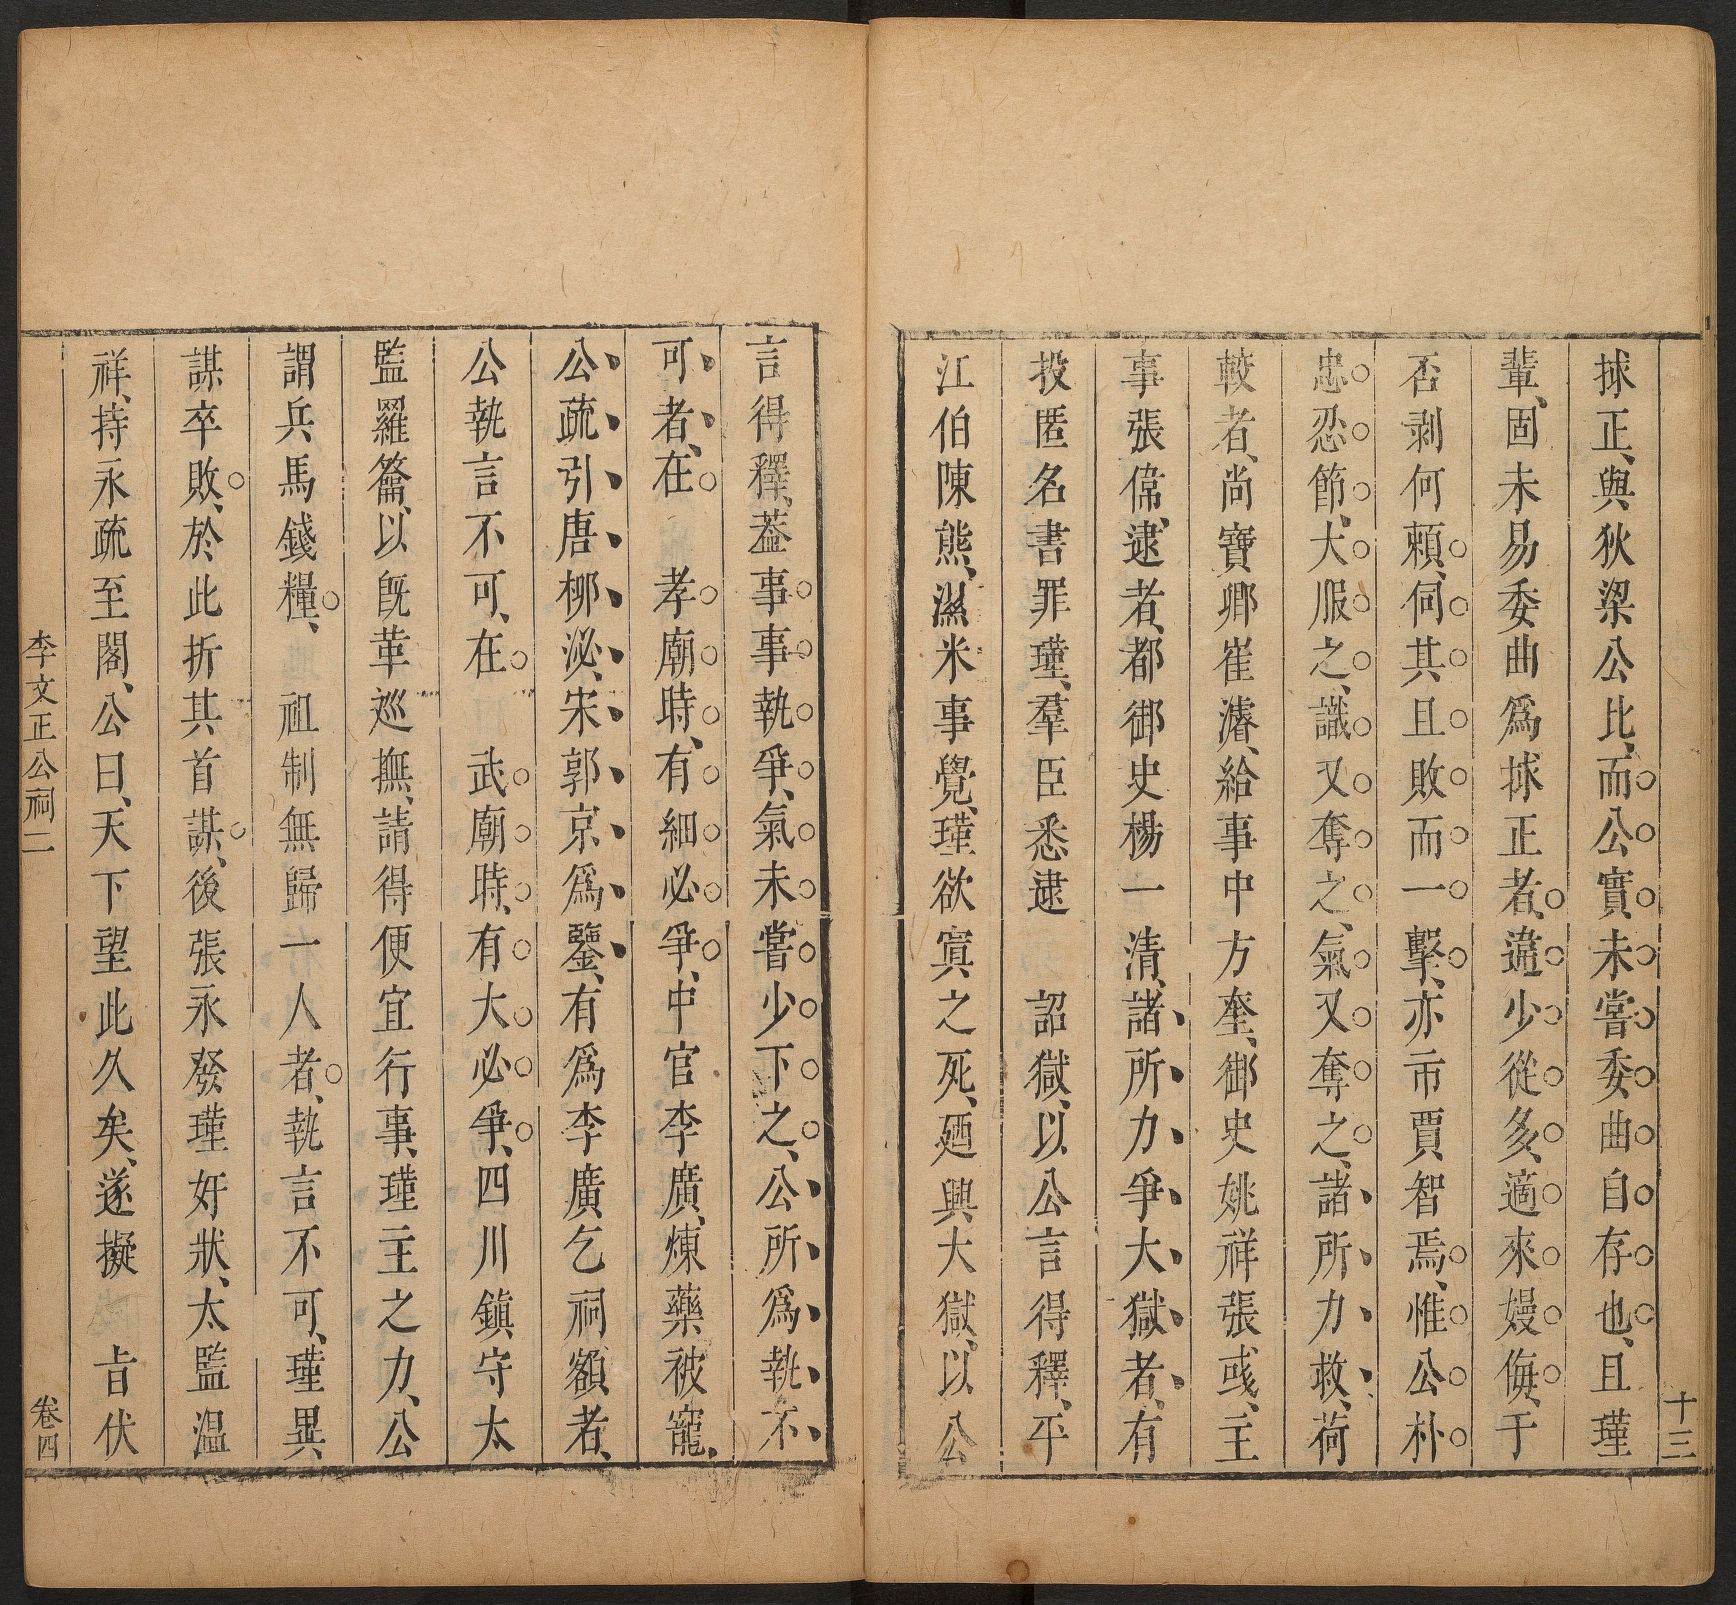 十三
捄正、與狄梁公比、而公實未嘗委曲自存也、且瑾
輩、固未易委曲爲捄正者、違少從多、適來嫚侮、于
否剥何賴、伺其且敗而一擊、亦市賈智焉、惟公朴
忠忍節、大服之、識又奪之、氣又奪之、諸所力救、荷
較者、尚寶卿崔濬、給事中方奎、御史姚祥張彧、主
事張偉、逮者、都御史楊一清、諸所力爭大獄者、有
投匿名書罪瑾、羣臣悉逮　詔獄、以公言得釋、平
江伯陳熊、濕米事覺、瑾欲寘之死、廼興大獄、以公
言得釋、葢事事執爭、氣未嘗少下之、公所爲執不
可者、在　孝廟時、有細必爭、中官李廣、煉藥被寵、
公疏引唐柳泌、宋郭京爲鑒、有爲李廣乞祠額者、
公執言不可、在　武廟時、有大必爭、四川鎮守太
監羅籥、以旣革巡撫、請得便宜行事、瑾主之力、公
謂兵馬錢糧、　祖制無歸一人者、執言不可、瑾異
謀卒敗、於此折其首謀、後張永發瑾奸狀、太監温
祥、持永疏至閣、公曰、天下望此久矣、遂擬　旨伏
李文正公祠二
卷四